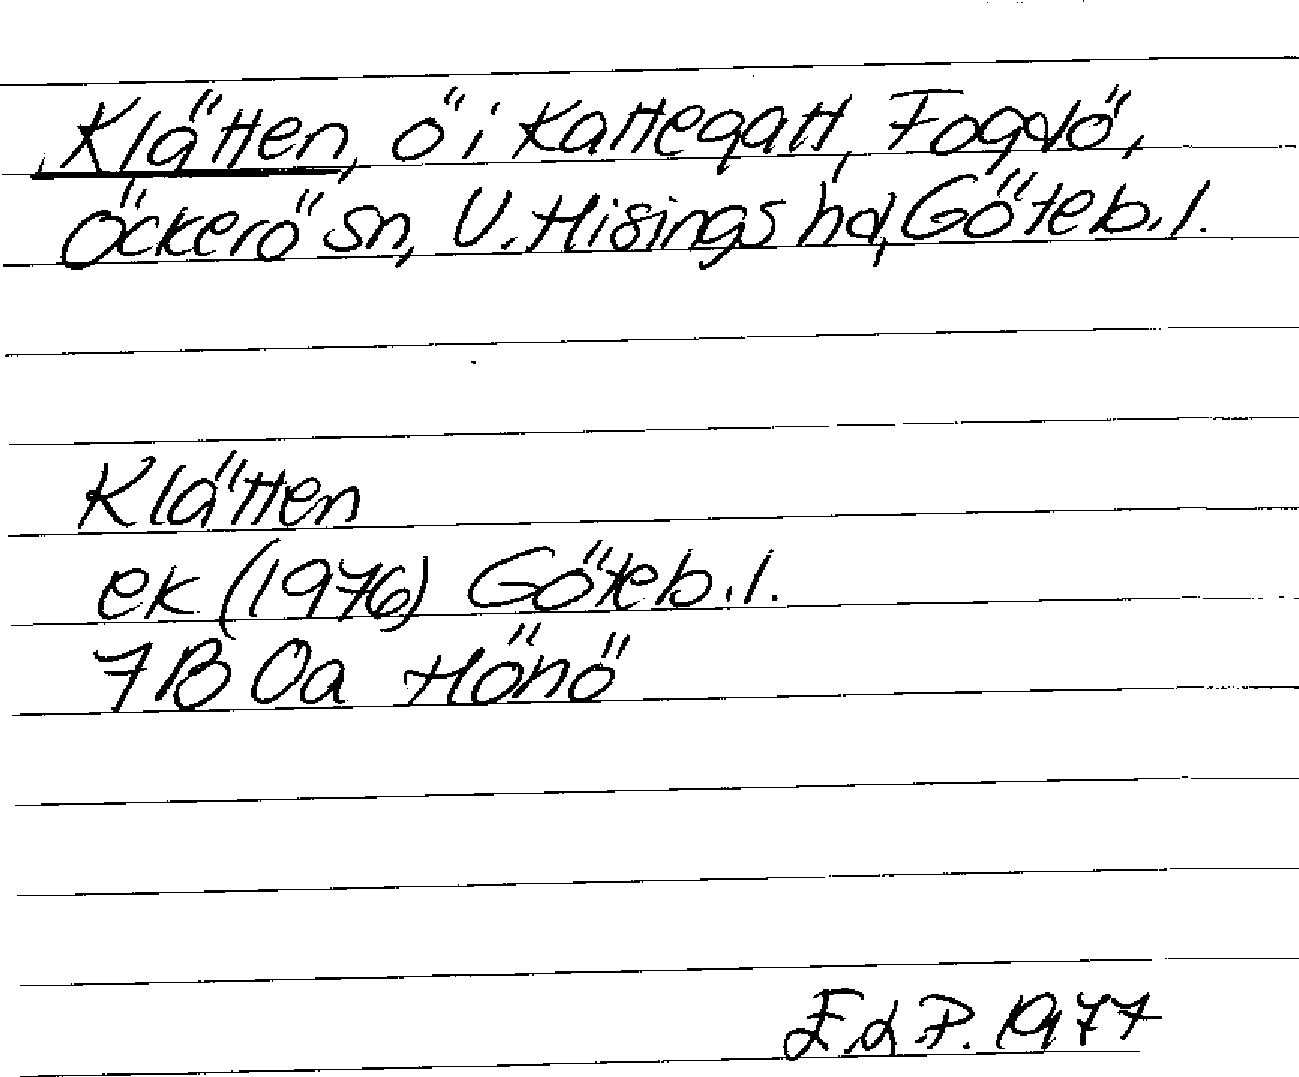 Klätten, ö i Kattegatt, Fogdö,
Öckerö sn, V. Hisings hd, Göteb. l.
Klätten
ek (1976) Göteb. l.
7B 0a Hönö
E.d.P. 1977